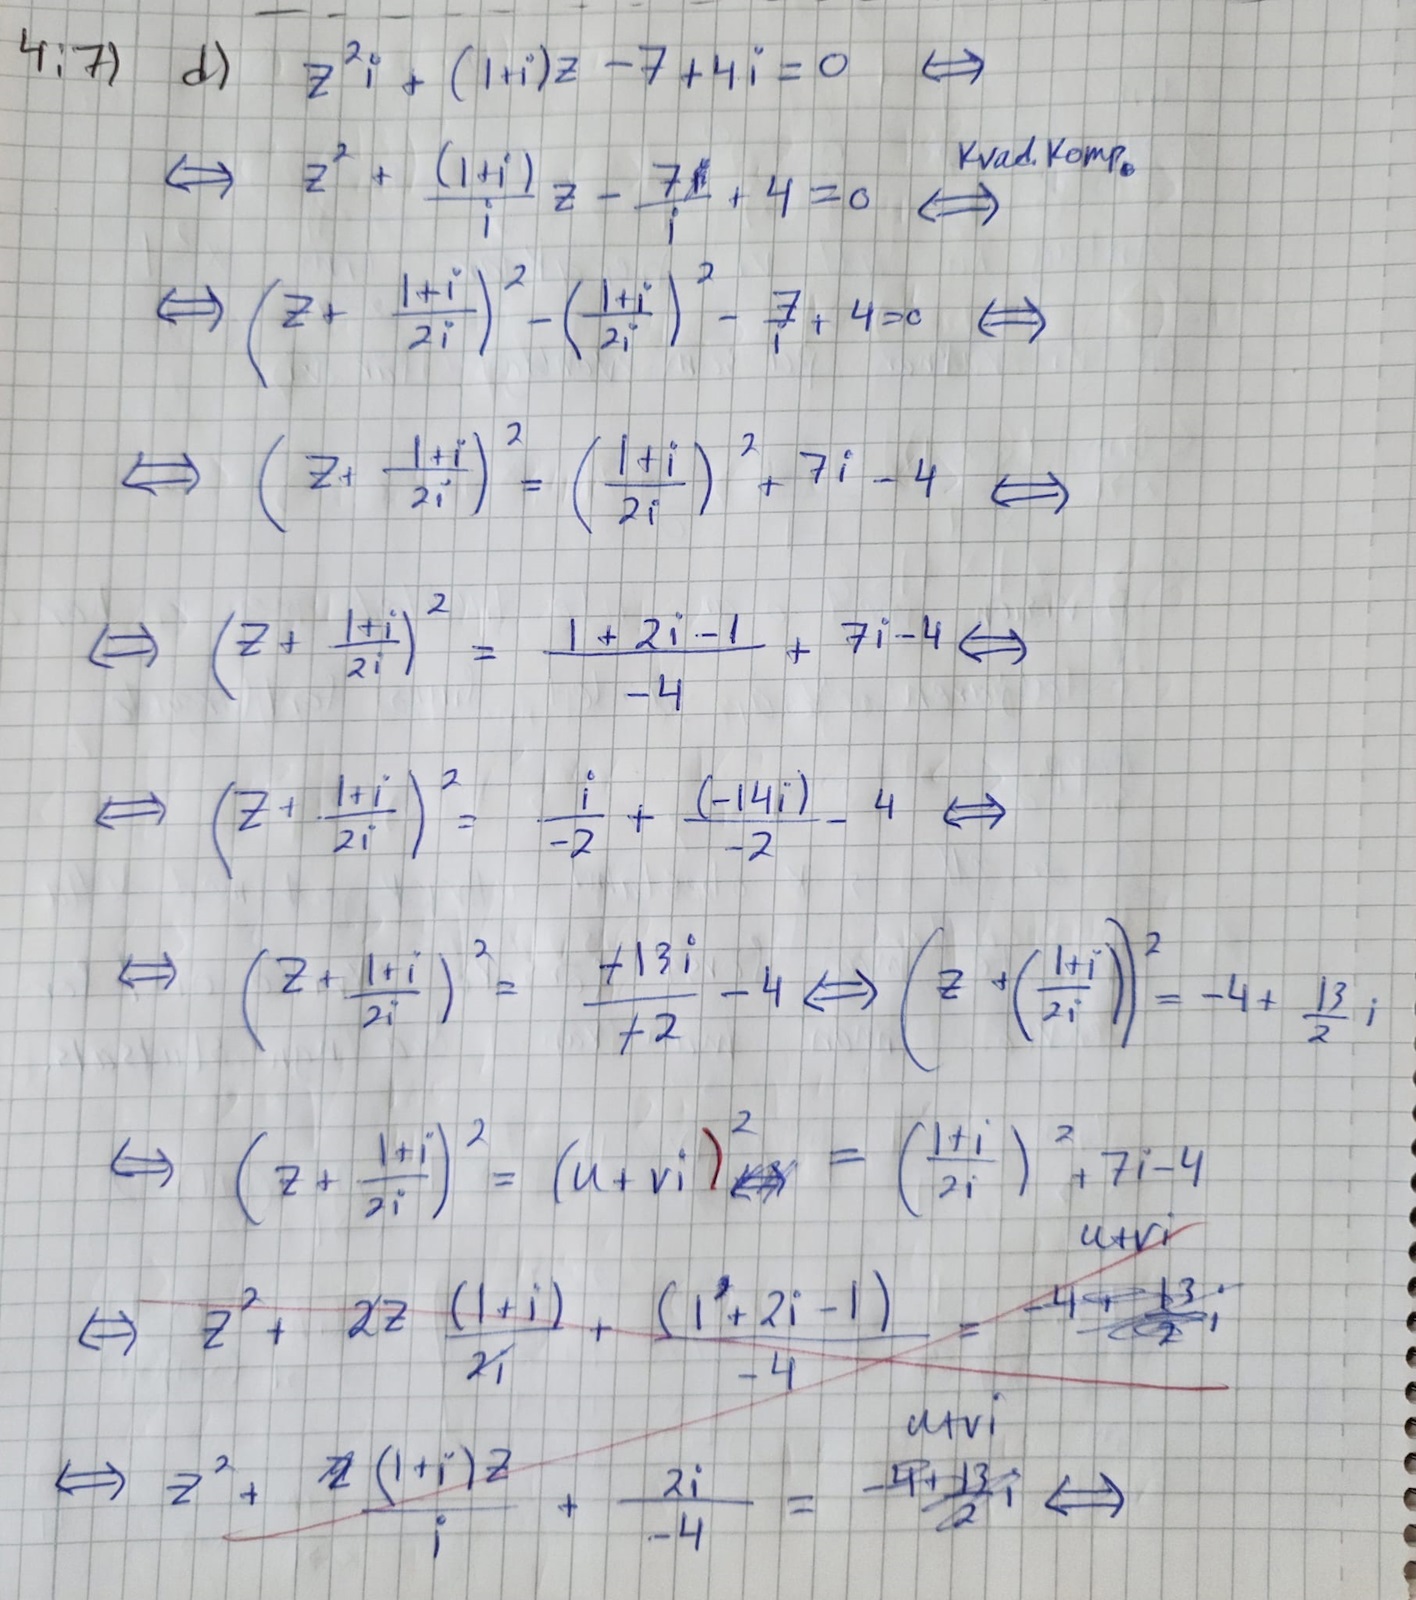 4:7) d) z²i + (1+i)z - 7 + 4i = 0 ⇔
⇔ z² + (1+i)/i z - 7/i + 4 = 0 ⇔ Kvad. Komp.
⇔ (z + (1+i)/2i)² - ((1+i)/2i)² - 7/i + 4 = 0 ⇔
⇔ (z + (1+i)/2i)² = ((1+i)/2i)² + 7i - 4 ⇔
⇔ (z + (1+i)/2i)² = (1 + 2i - 1)/-4 + 7i - 4 ⇔
⇔ (z + (1+i)/2i)² = i/-2 + (-14i)/-2 - 4 ⇔
⇔ (z + (1+i)/2i)² = +13i/+2 - 4 ⇔ (z + ((1+i)/2i))² = -4 + 13/2 i
⇔ (z + (1+i)/2i)² = (u + vi)² = ((1+i)/2i)² + 7i - 4
u+vi
⇔ z² + 2z (1+i)/2i + (1² + 2i - 1)/-4 = -4 + 13/2 i
u+vi
⇔ z² + (1+i)z/i + 2i/-4 = -4 + 13/2 i ⇔